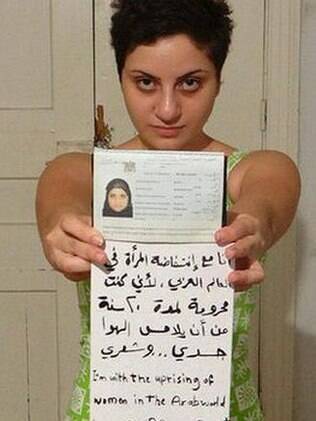 أنا مع إنتفاضة المرأة في
العالم العربي، لأني كنت
محرومة لمدة ٢٠ سنة
من أن يلامس الهوا
جسدي... وشعري
I'm with the uprising of
women in the Arab world